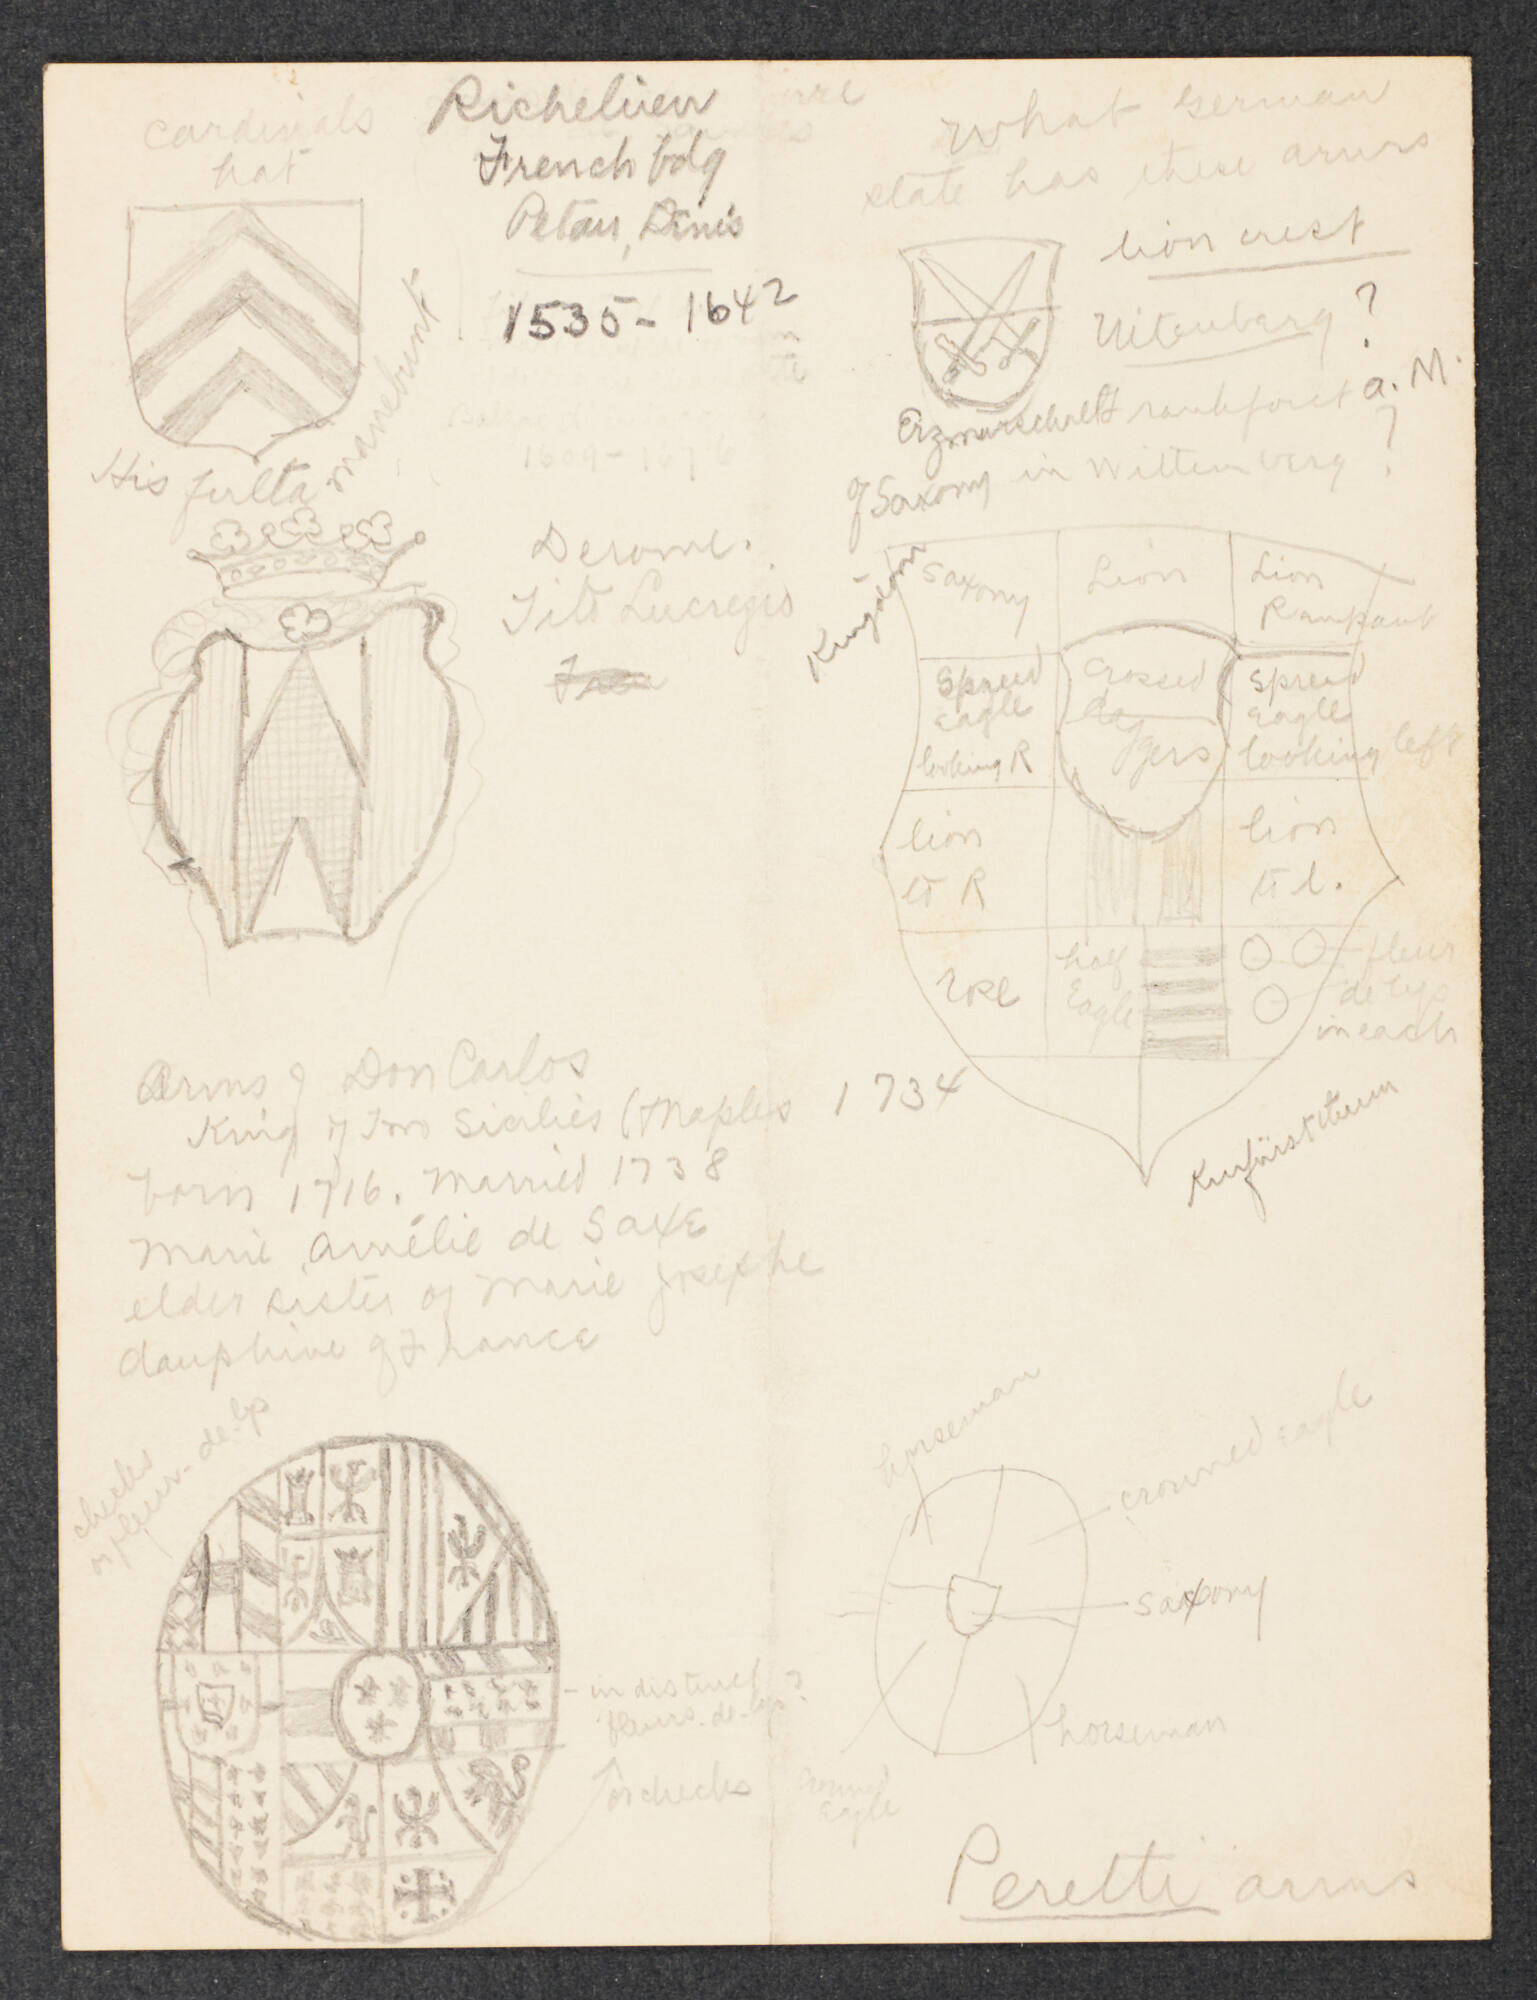 cardinals
hat
Richelieu
French bdg
Petau, Denis
1535 - 1642
His fulta manebunt
1609 - 1676
Derome.
Tito Lucregio
Arms of Don Carlos
King of Two Sicilies (Naples 1734
born 1716. Married 1738
Marie Amélie de Saxe
elder sister of Marie Josephe
dauphine of France
checks
or fleur-de-lys
- indistinct
fleurs-de-lys?
or checks
What German
state has these arms
lion crest
Witenberg ?
Erzmarschalt Frankfort a. M.
of Saxony in Wittenberg ?
Kingdom
Saxony
Lion
Lion
Rampant
Spread
Eagle
looking R
crossed
daggers
Spread
Eagle
looking left
lion
to R
lion
to l.
half
Eagle
fleur
de lys
in each
Kurfürsttum
horseman
crowned eagle
Saxony
horseman
crowned
Eagle
Peretti arms